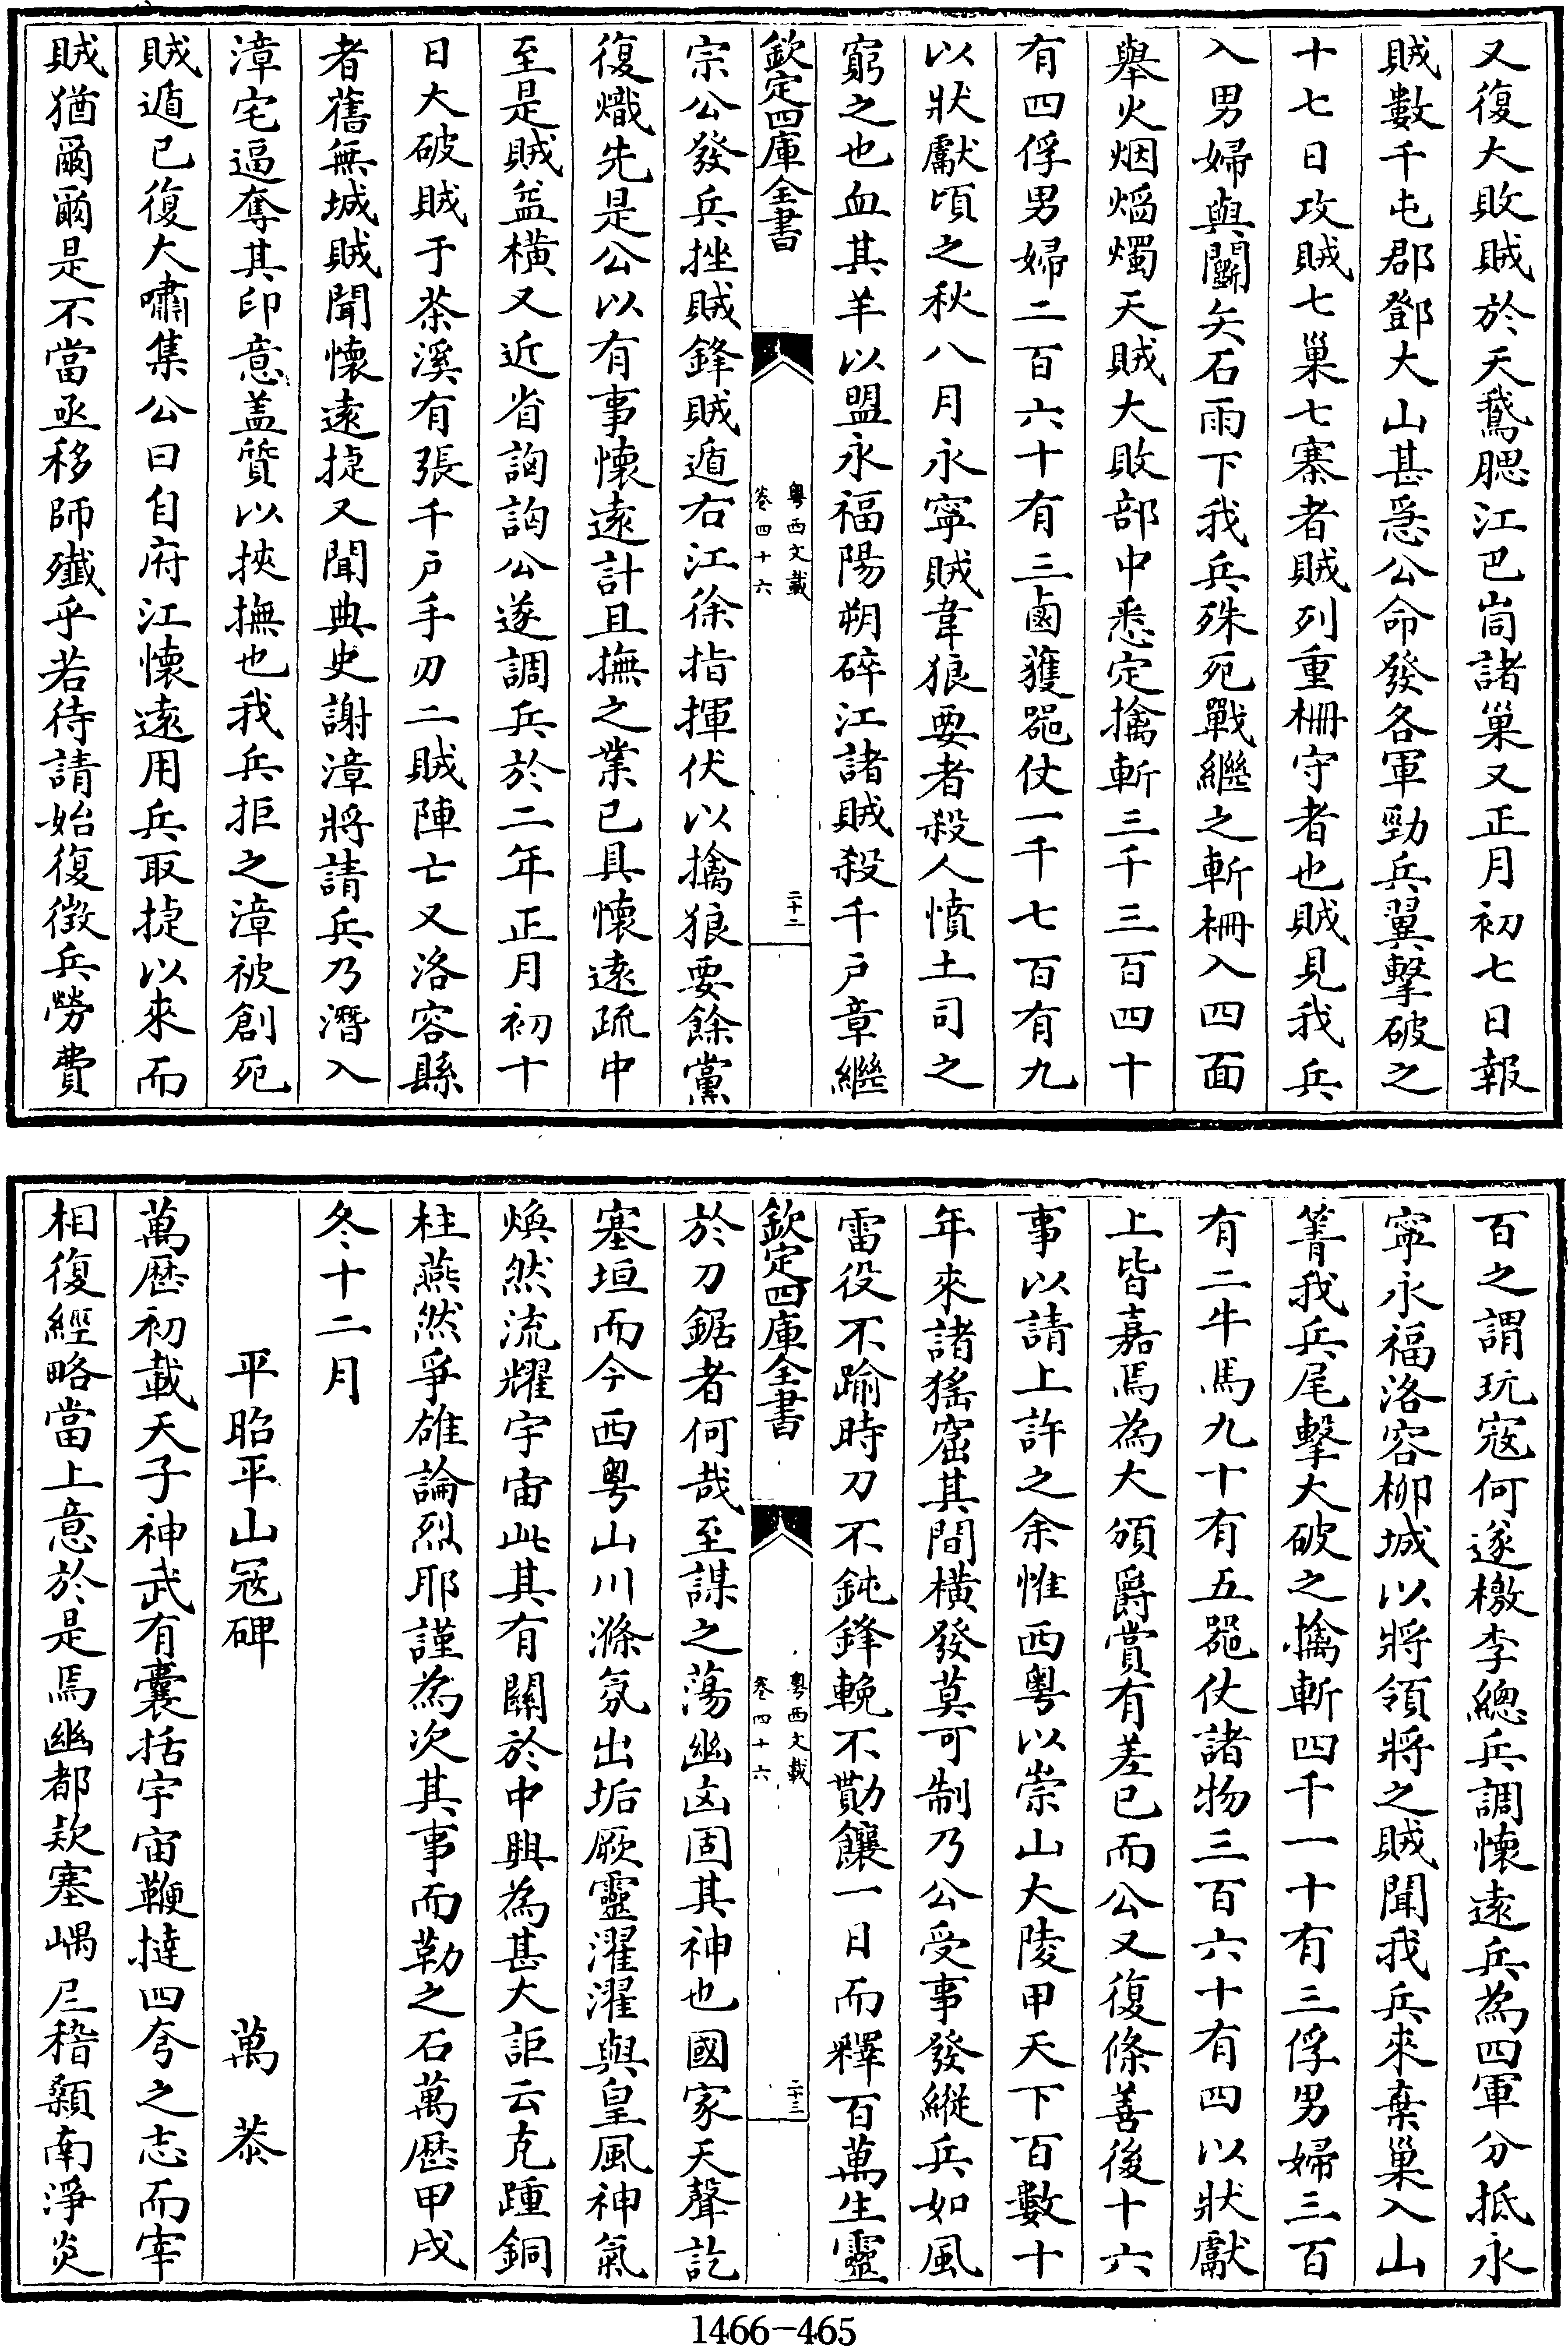 又復大敗賊於天鵞腮江巴峝諸巢又正月初七日報
賊數千屯郡鄧大山甚惡公命發各軍勁兵翼擊破之
十七日攻賊七巢七寨者賊列重柵守者也賊見我兵
入男婦與鬭矢石雨下我兵殊死戰繼之斬柵入四面
舉火烟熖燭天賊大敗部中悉定擒斬三千三百四十
有四俘男婦二百六十有三鹵獲噐仗一千七百有九
以狀獻頃之秋八月永寧賊韋狼要者殺人憤土司之
窮之也血其羊以盟永福陽朔碎江諸賊殺千户章繼
欽定四庫全書
粤西文載
卷四十六
二十二
宗公發兵挫賊鋒賊遁右江徐指揮伏以擒狼要餘黨
復熾先是公以有事懷遠計且撫之業已具懷遠疏中
至是賊益橫又近省詾詾公遂調兵於二年正月初十
日大破賊于茶溪有張千戸手刃二賊陣亡又洛容縣
者舊無城賊聞懷遠捷又聞典史謝漳將請兵乃潛入
漳宅逼奪其印意盖質以挾撫也我兵拒之漳被創死
賊遁已復大嘯集公曰自府江懷遠用兵取捷以來而
賊猶爾爾是不當亟移師殲乎若待請始復徴兵勞費
百之謂玩寇何遂檄李總兵調懷遠兵為四軍分抵永
寧永福洛容柳城以將領將之賊聞我兵來棄巢入山
箐我兵尾擊大破之擒斬四千一十有三俘男婦三百
有二牛馬九十有五噐仗諸物三百六十有四以狀獻
上皆嘉焉為大頒爵賞有差已而公又復條善後十六
事以請上許之余惟西粤以崇山大陵甲天下百數十
年來諸猺窟其間橫發莫可制乃公受事發縱兵如風
雷役不踰時刀不鈍鋒輓不勩饟一日而釋百萬生靈
欽定四庫全書
粤西文載
卷四十六
二十三
於刀鋸者何哉至謀之蕩幽凶固其神也國家天聲訖
塞垣而今西粤山川滌氛出垢厥靈濯濯與皇風神氣
煥然流耀宇宙此其有關於中興為甚大詎云克踵銅
柱燕然爭雄論烈耶謹為次其事而勒之石萬歴甲戌
冬十二月
平昭平山冦碑　萬㳟
萬歴初載天子神武有囊括宇宙鞭撻四夸之志而宰
相復經略當上意於是焉幽都欵塞嵎𡰥稽顙南淨炎